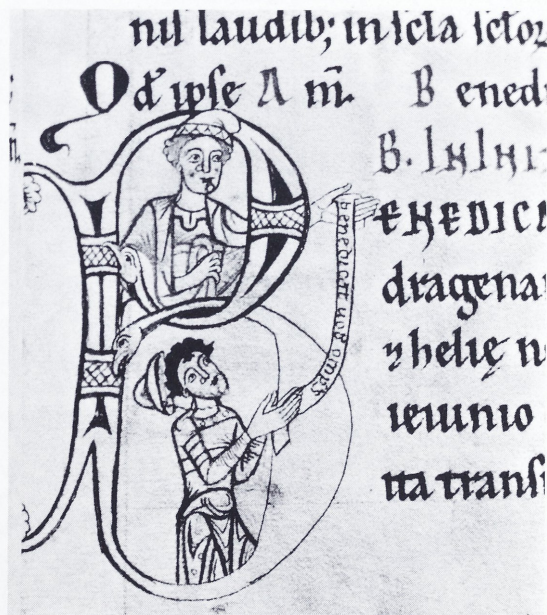 nis laudib; in scta sctoꝝ
Qd ipse A m̄. B ened
B. IN INI
ENEDICA
dragena
⁊ helię n
ieiunio
tta transi
benedicat uos omps